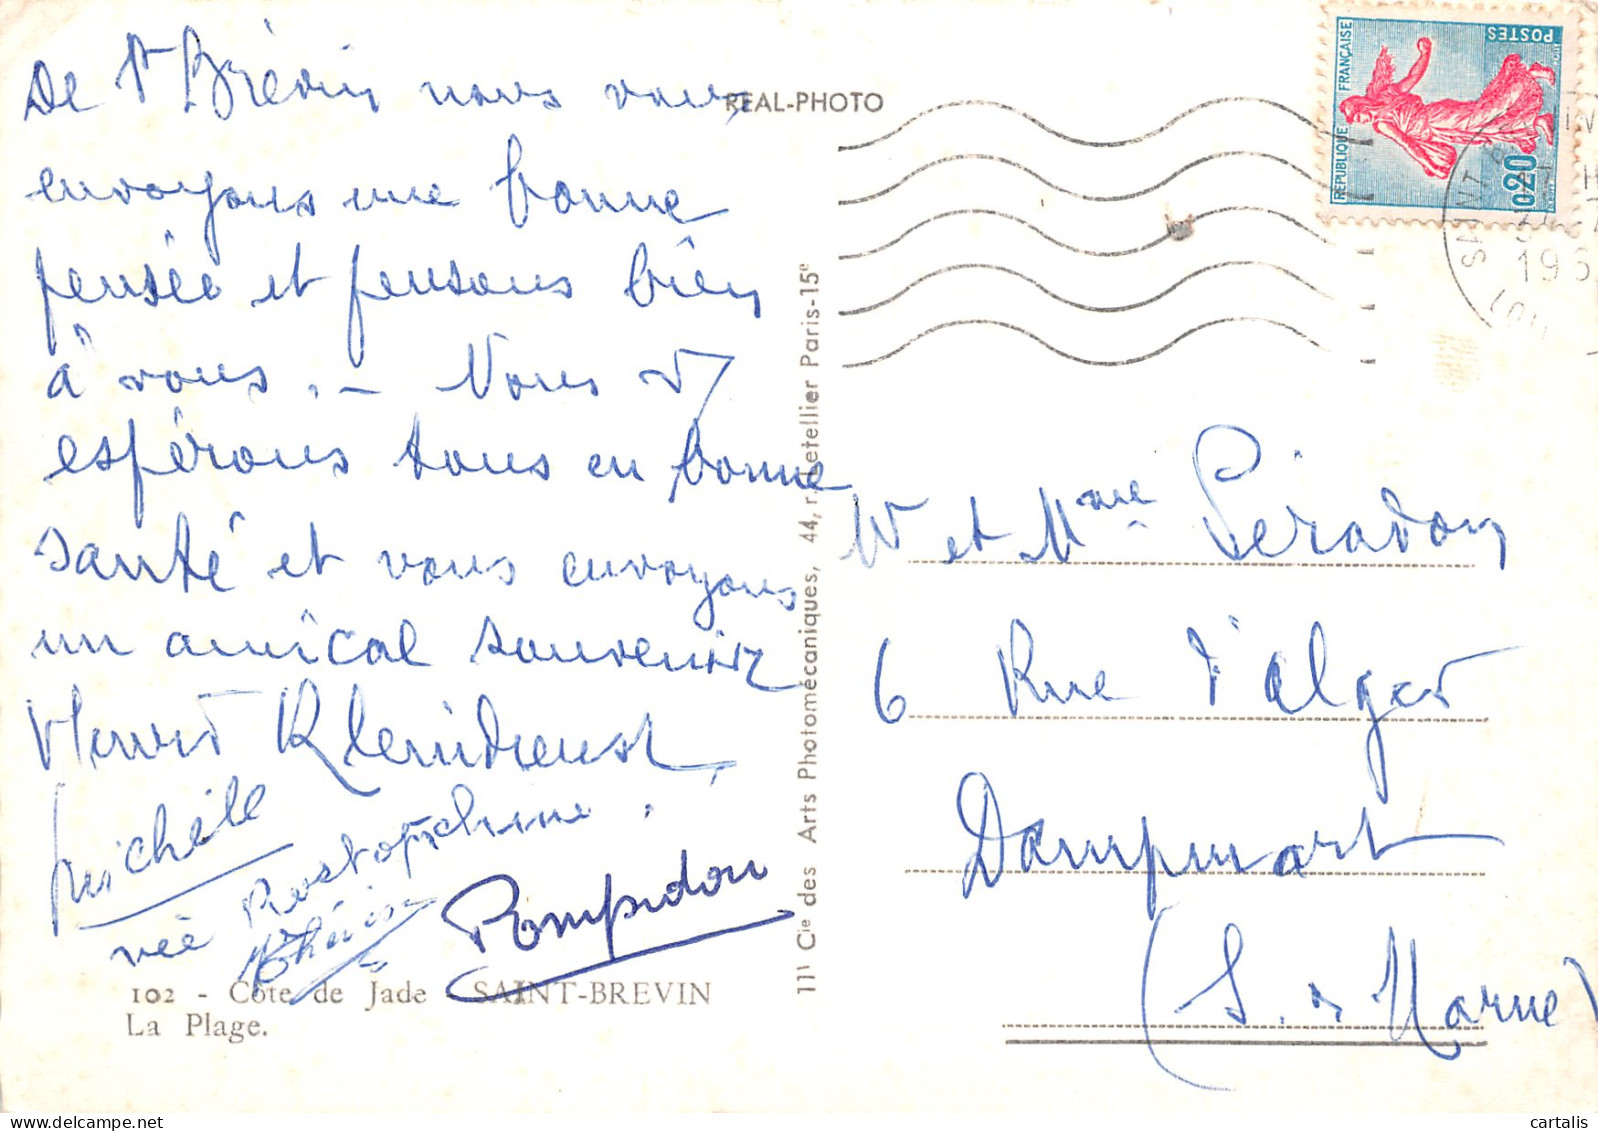 De St Brévin nous vous
envoyons une bonne
pensée et pensons bien
à vous. - Nous
espérons tous en bonne
santé et vous envoyons
un amical souvenir
Michèle
née Rostopchine.
Pompidou
102 - Côte de Jade - SAINT-BREVIN
La Plage.
REAL-PHOTO
111 Cie des Arts Photomécaniques, 44, r. Letellier Paris-15e
RÉPUBLIQUE FRANÇAISE
POSTES
0,20
SAINT
196
M et Mme Péradon
6 Rue d'Alger
Dampmart
(S. & Marne)
cartalis